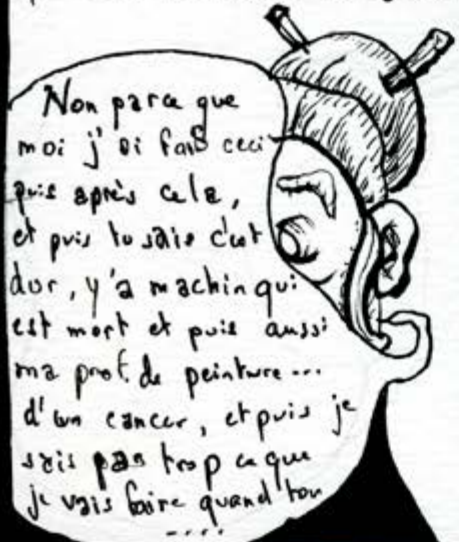 Non parce que
moi j'ai fais ceci
puis après cela,
et puis tu sais c'est
dur, y'a machin qui
est mort et puis aussi
ma prof. de peinture...
d'un cancer, et puis je
sais pas trop ce que
je vais faire quand ton
....